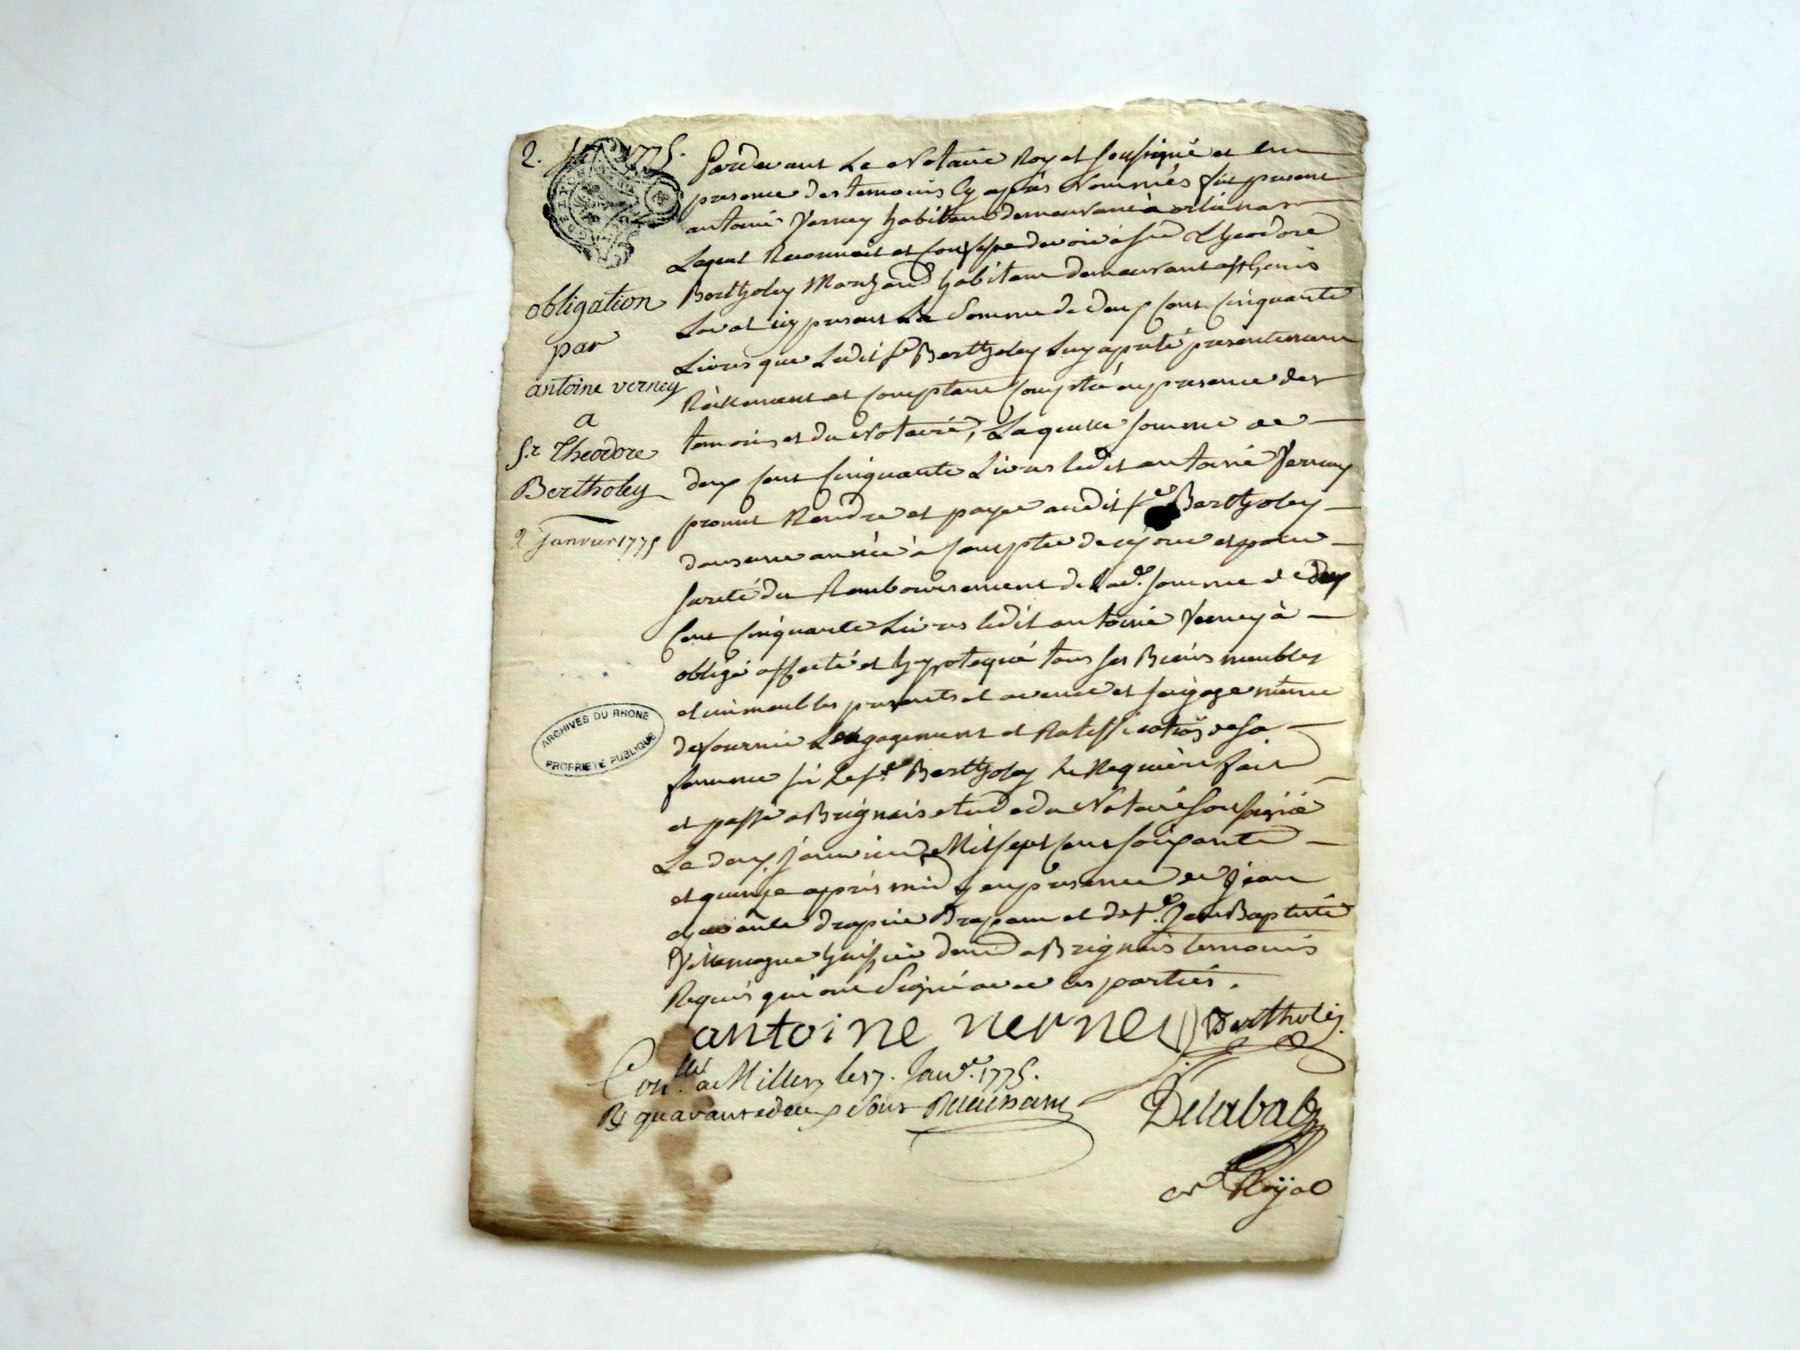 2. 1775.
obligation
par
antoine verney
a
Sr. Theodore
Bertholey
2 Janvier 1775
ARCHIVES DU RHONE
PROPRIETE PUBLIQUE
Pardevant Le Notaire Royal soussigné et en
presence des temoins cy après Nommés fut present
antoine Verney habitant demeurant à orlienas
Lequel Reconnoit et Confesse devoir à Sr Theodore
Bertholey Marchand habitant demeurant a st Genis
Laval icy present La Somme de deux cent Cinquante
Livres que Ledit Sr Bertholey Luy a preté presentement
Réellement et comptant Compté en presence des
temoins et du Notaire, Laquelle somme de
deux cent Cinquante Livres ledit antoine Verney
promet Rendre et payer audit Sr Bertholey
dans une année à Compter de ce jour et pour
sureté du Remboursement de Lad. somme de deux
Cent Cinquante Livres ledit antoine Verney à
obligé affecté et hypotequé tous ses Biens meubles
et immeubles presents et avenir et s'engage meme
de fournir L'engagement et Ratiffication de sa
femme si Le Sr Bertholey Le Requière fait
et passé a Brignais etude du Notaire soussigné
Le deux janvier Mil sept cent soixante
et quinze après midy en presence de Jean
drapier et de Sr. Jean Baptiste
Villemagne huissier dem. a Brignais temoins
Requis qui ont Signé avec les parties.
antoine verney Bertholey
Conllé a Millery le 17. Janv. 1775.
R quarante deux sous
Delabaly
nre Royal